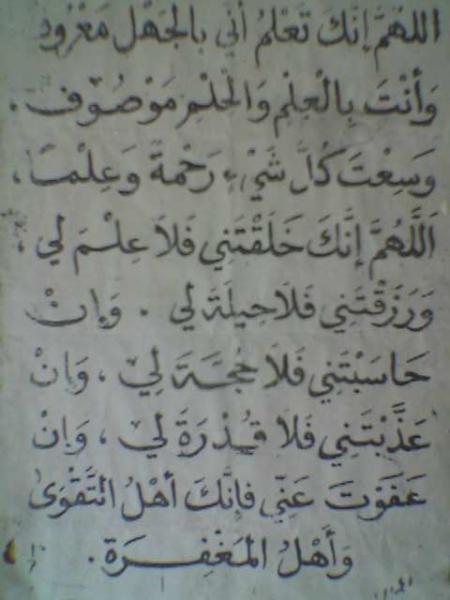 اللهُمَّ إِنَّكَ تَعْلَمُ أَنِّي بِالجَهْلِ مَعْرُوف
وَأَنْتَ بِالْعِلْمِ وَالْحِلْمِ مَوْصُوف .
وَسِعْتَ كُلَّ شَيْءٍ رَحْمَةً وَعِلْمًا ،
اَللَّهُمَّ إِنَّكَ خَلَقْتَنِي فَلاَ عِلْمَ لِي ،
وَرَزَقْتَنِي فَلاَ حِيلَةَ لِي . وَإِنْ
حَاسَبْتَنِي فَلاَ حُجَّةَ لِي ، وَإِنْ
عَذَّبْتَنِي فَلاَ قُدْرَةَ لِي ، وَإِنْ
عَفَوْتَ عَنِّي فَإِنَّكَ أَهْلُ التَّقْوَىٰ
وَأَهْلُ المَغْفِرَةِ .